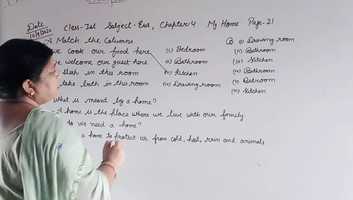 Date
Class-Ist Subject-Evs, Chapter 4 My Home Page-21
Match the Columns
we cook our food here (i) Bedroom
welcome our guest here (ii) Bathroom
in this room (iii) Kitchen
take bath in this room (iv) Drawing room
B (i) Drawing room
(ii) Bathroom
(iii) Kitchen
(iv) Bathroom
(v) Bedroom
(vi) Kitchen
What is meant by a home?
home is the place where we live with our family
do we need a home?
a home to protect us from cold, hot, rain and animals